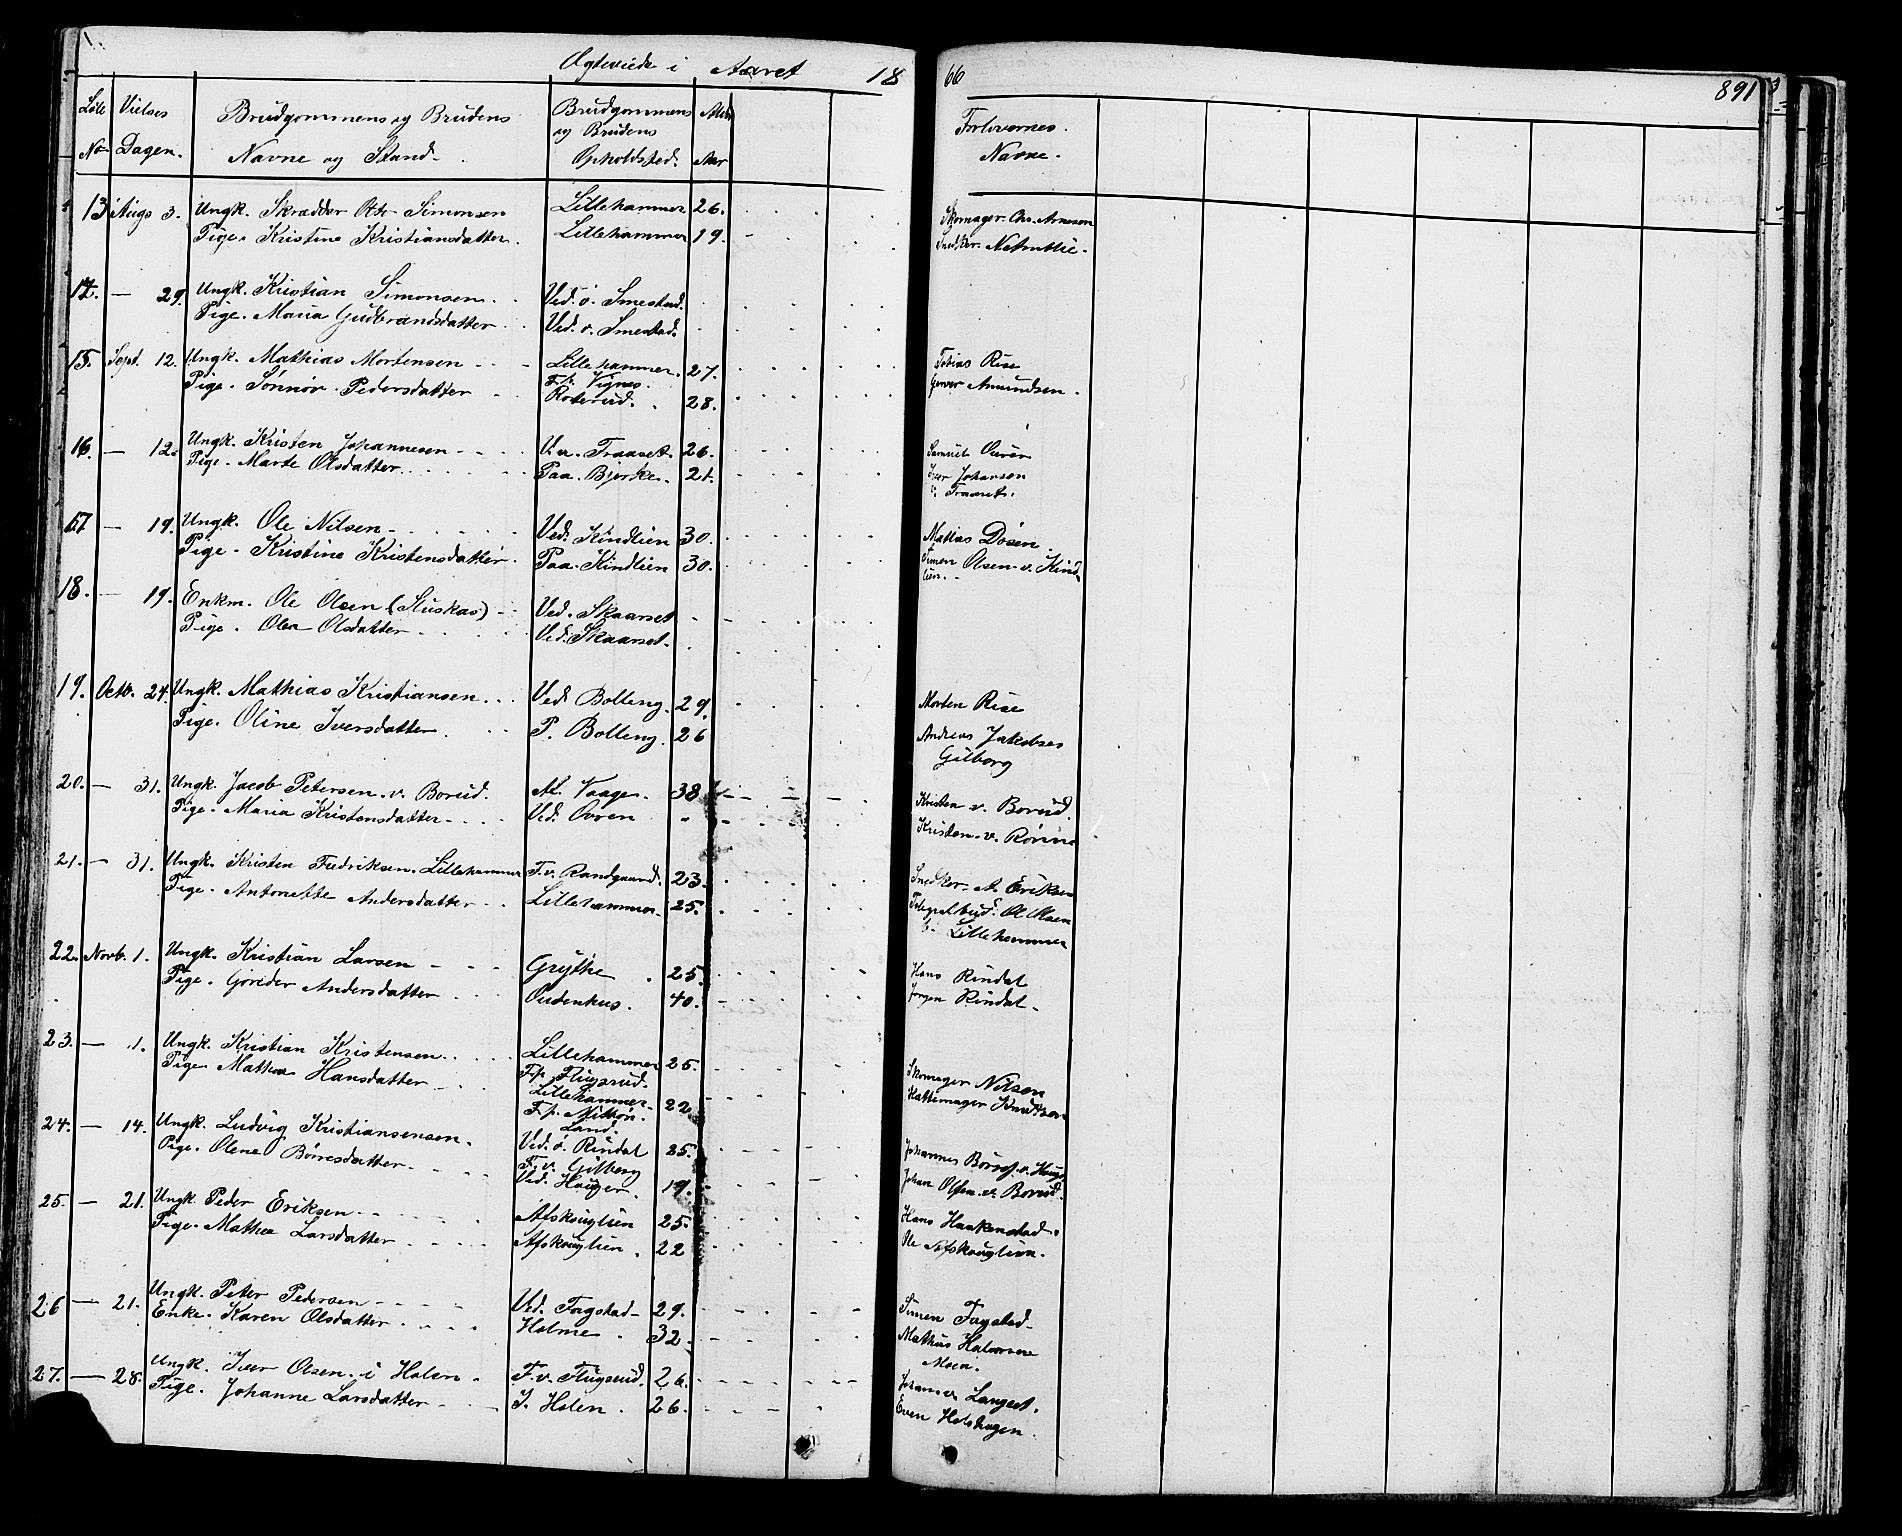 Ægteviede i Aaret 18 66 891
Løbe No. Vielses Dagen. Brudgommens og Brudens Navne og Stand. Brudgommens og Brudens Opholdsted. Alder Aar Forlovernes Navne.
13 Augs 3. Ungk. Skrædder Ole Simonsen Lillehammer 26. Skomager Chr. Arnesen
Pige. Kristine Kristiansdatter. Lillehammer 19. Snedker
14. — 29. Ungk. Kristian Simonsen. Ved. ö. Smestad.
Pige. Maria Gudbrandsdatter Ved. v. Smestad.
15. Sept. 12. Ungk. Mathias Mortensen Lillehammer. F. p. Vignes. 27. Tobias Rise
Pige. Sönnöv Pedersdatter Roterud. 28. Amundsen.
16. — 12. Ungk. Kristen Johannesen V. Traaset. 26. Samuel
Pige. Marte Olsdatter Paa. Bjerke. 21. Iver Johansen v. Traaset.
17 — 19. Ungk. Ole Nilsen Ved. Kindlien 30. Matias Dösen
Pige. Kristine Kristensdatter. Paa. Kindlien 30. Simen Olsen v. Kindlien.
18. — 19. Enkm. Ole Olsen (Sluskas) Ved. Skaarset
Pige. Olea Olsdatter Ved. Skaarset.
19. Octb. 24. Ungk. Mathias Kristiansen Ved Bolleng. 29. Morten Rise
Pige. Oline Iversdatter P. Bolleng. 26 Andreas Jakobsen Gilberg
20. — 31. Ungk. Jacob Petersen v. Borud. Vaage. 38 Kristen v. Borud.
Pige. Maria Kristensdatter Ved. Ovren Kristen v. Rönne
21. — 31. Ungk. Kristen Fredriksen. Lillehammer F. v. Randgaard. 23. Snedker A. Eriksen
Pige. Antonette Andersdatter Lillehammer 25. Telegrafbud. Ol Olsen b. Lillehammer
22. Novb. 1. Ungk. Kristian Larsen Grythe 25. Hans Rindal
Pige. Goreder Andersdatter Oudenhus. 40. Jörgen Rindal
23. — 1. Ungk. Kristian Kristensen Lillehammer F. p. Flugsrud. 25. Skomager Nilsen
Pige. Mathea Hansdatter Lillehammer F. p. Land. 22 Hattemager Knutsen
24. — 14. Ungk. Ludvig Kristiansensen. Ved. ö. Rindal F. v. Gilberg 25. Johannes v. Hauger
Pige. Olene Börresdatter Ved. Hauger. 19. Johan Olsen v. Borud.
25. — 21. Ungk. Peder Eriksen Afskouglien 25. Hans Haakenstad.
Pige. Mathea Larsdatter Afskouglien. 22 Ole Afskouglien.
26 — 21. Ungk. Peter Pedersen Ved. Fagstad 29. Simen Fagstad
Enke. Karen Olsdatter Holme 32 Mathias Halvorsen Moen.
27. — 28. Ungk. Iver Olsen i Holen F. v. Flugsrud. 26. Johan v. Langset.
Pige. Johanne Larsdatter I. Holen. 26. Even Holshagen.